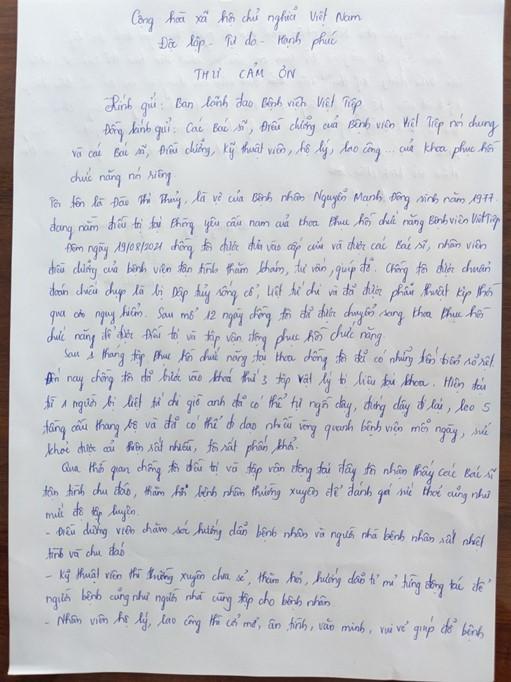 Cộng hoà xã hội chủ nghĩa Việt Nam
Độc lập - Tự do - Hạnh phúc
THƯ CẢM ƠN
Kính gửi: Ban lãnh đạo Bệnh viện Việt Tiệp
Đồng kính gửi: Các Bác sĩ, Điều dưỡng của Bệnh viện Việt Tiệp nói chung
và các Bác sĩ, Điều dưỡng, Kỹ thuật viên, hộ lý, lao công ... của khoa phục hồi
chức năng nói riêng.
Tôi tên là Đào Thị Thuỷ, là vợ của Bệnh nhân Nguyễn Mạnh Đông sinh năm 1977
đang nằm điều trị tại Phòng yêu cầu nam của khoa Phục hồi chức năng Bệnh viện Việt Tiệp
Đêm ngày 19/08/2021 chồng tôi được đưa vào cấp cứu và được các Bác sĩ, nhân viên
điều dưỡng của bệnh viện tận tình thăm khám, tư vấn, giúp đỡ. Chồng tôi được chuẩn
đoán chiếu chụp là bị Dập tuỷ sống cổ, liệt tứ chi và đã được phẫu thuật kịp thời
qua cơn nguy hiểm. Sau mổ 12 ngày chồng tôi đã được chuyển sang khoa Phục hồi
chức năng để được Điều trị và tập vận động phục hồi chức năng.
Sau 1 tháng tập Phục hồi chức năng tại khoa chồng tôi đã có những tiến triển rõ rệt.
Đến nay chồng tôi đã bước vào khoá thứ 3 tập vật lý trị liệu tại khoa. Hiện tại
từ 1 người bị liệt tứ chi giờ anh đã có thể tự ngồi dậy, đứng dậy đi lại, leo 5
tầng cầu thang bộ và đã có thể đi dạo nhiều vòng quanh bệnh viện mỗi ngày, sức
khoẻ được cải thiện rất nhiều, tôi rất phấn khởi.
Qua thời gian chồng tôi điều trị và tập vận động tại đây tôi nhận thấy các Bác sĩ
tận tình chu đáo, thăm hỏi bệnh nhân thường xuyên để đánh giá sức khoẻ cũng như
mức độ tập luyện.
- Điều dưỡng viên chăm sóc hướng dẫn bệnh nhân và người nhà bệnh nhân rất nhiệt
tình và chu đáo
- Kỹ thuật viên thì thường xuyên chia sẻ, thăm hỏi, hướng dẫn tỉ mỉ từng động tác để
người bệnh cũng như người nhà cùng tập cho bệnh nhân
- Nhân viên hộ lý, lao công thì cởi mở, ân tình, văn minh, vui vẻ giúp đỡ bệnh